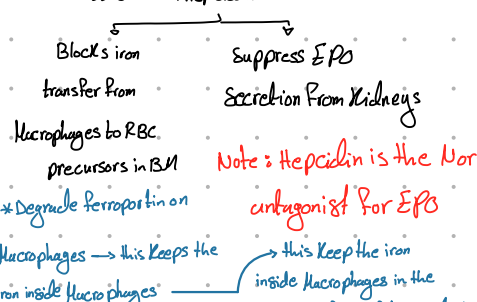 Blocks iron
transfer from
Macrophages to RBC
precursors in BM
Suppress EPO
Secretion From Kidneys
Note : Hepcidin is the Nor
antagonist for EPO
* Degrade ferroportin on
Macrophages → this Keeps the
iron inside Macrophages
this Keep the iron
inside Macrophages in the